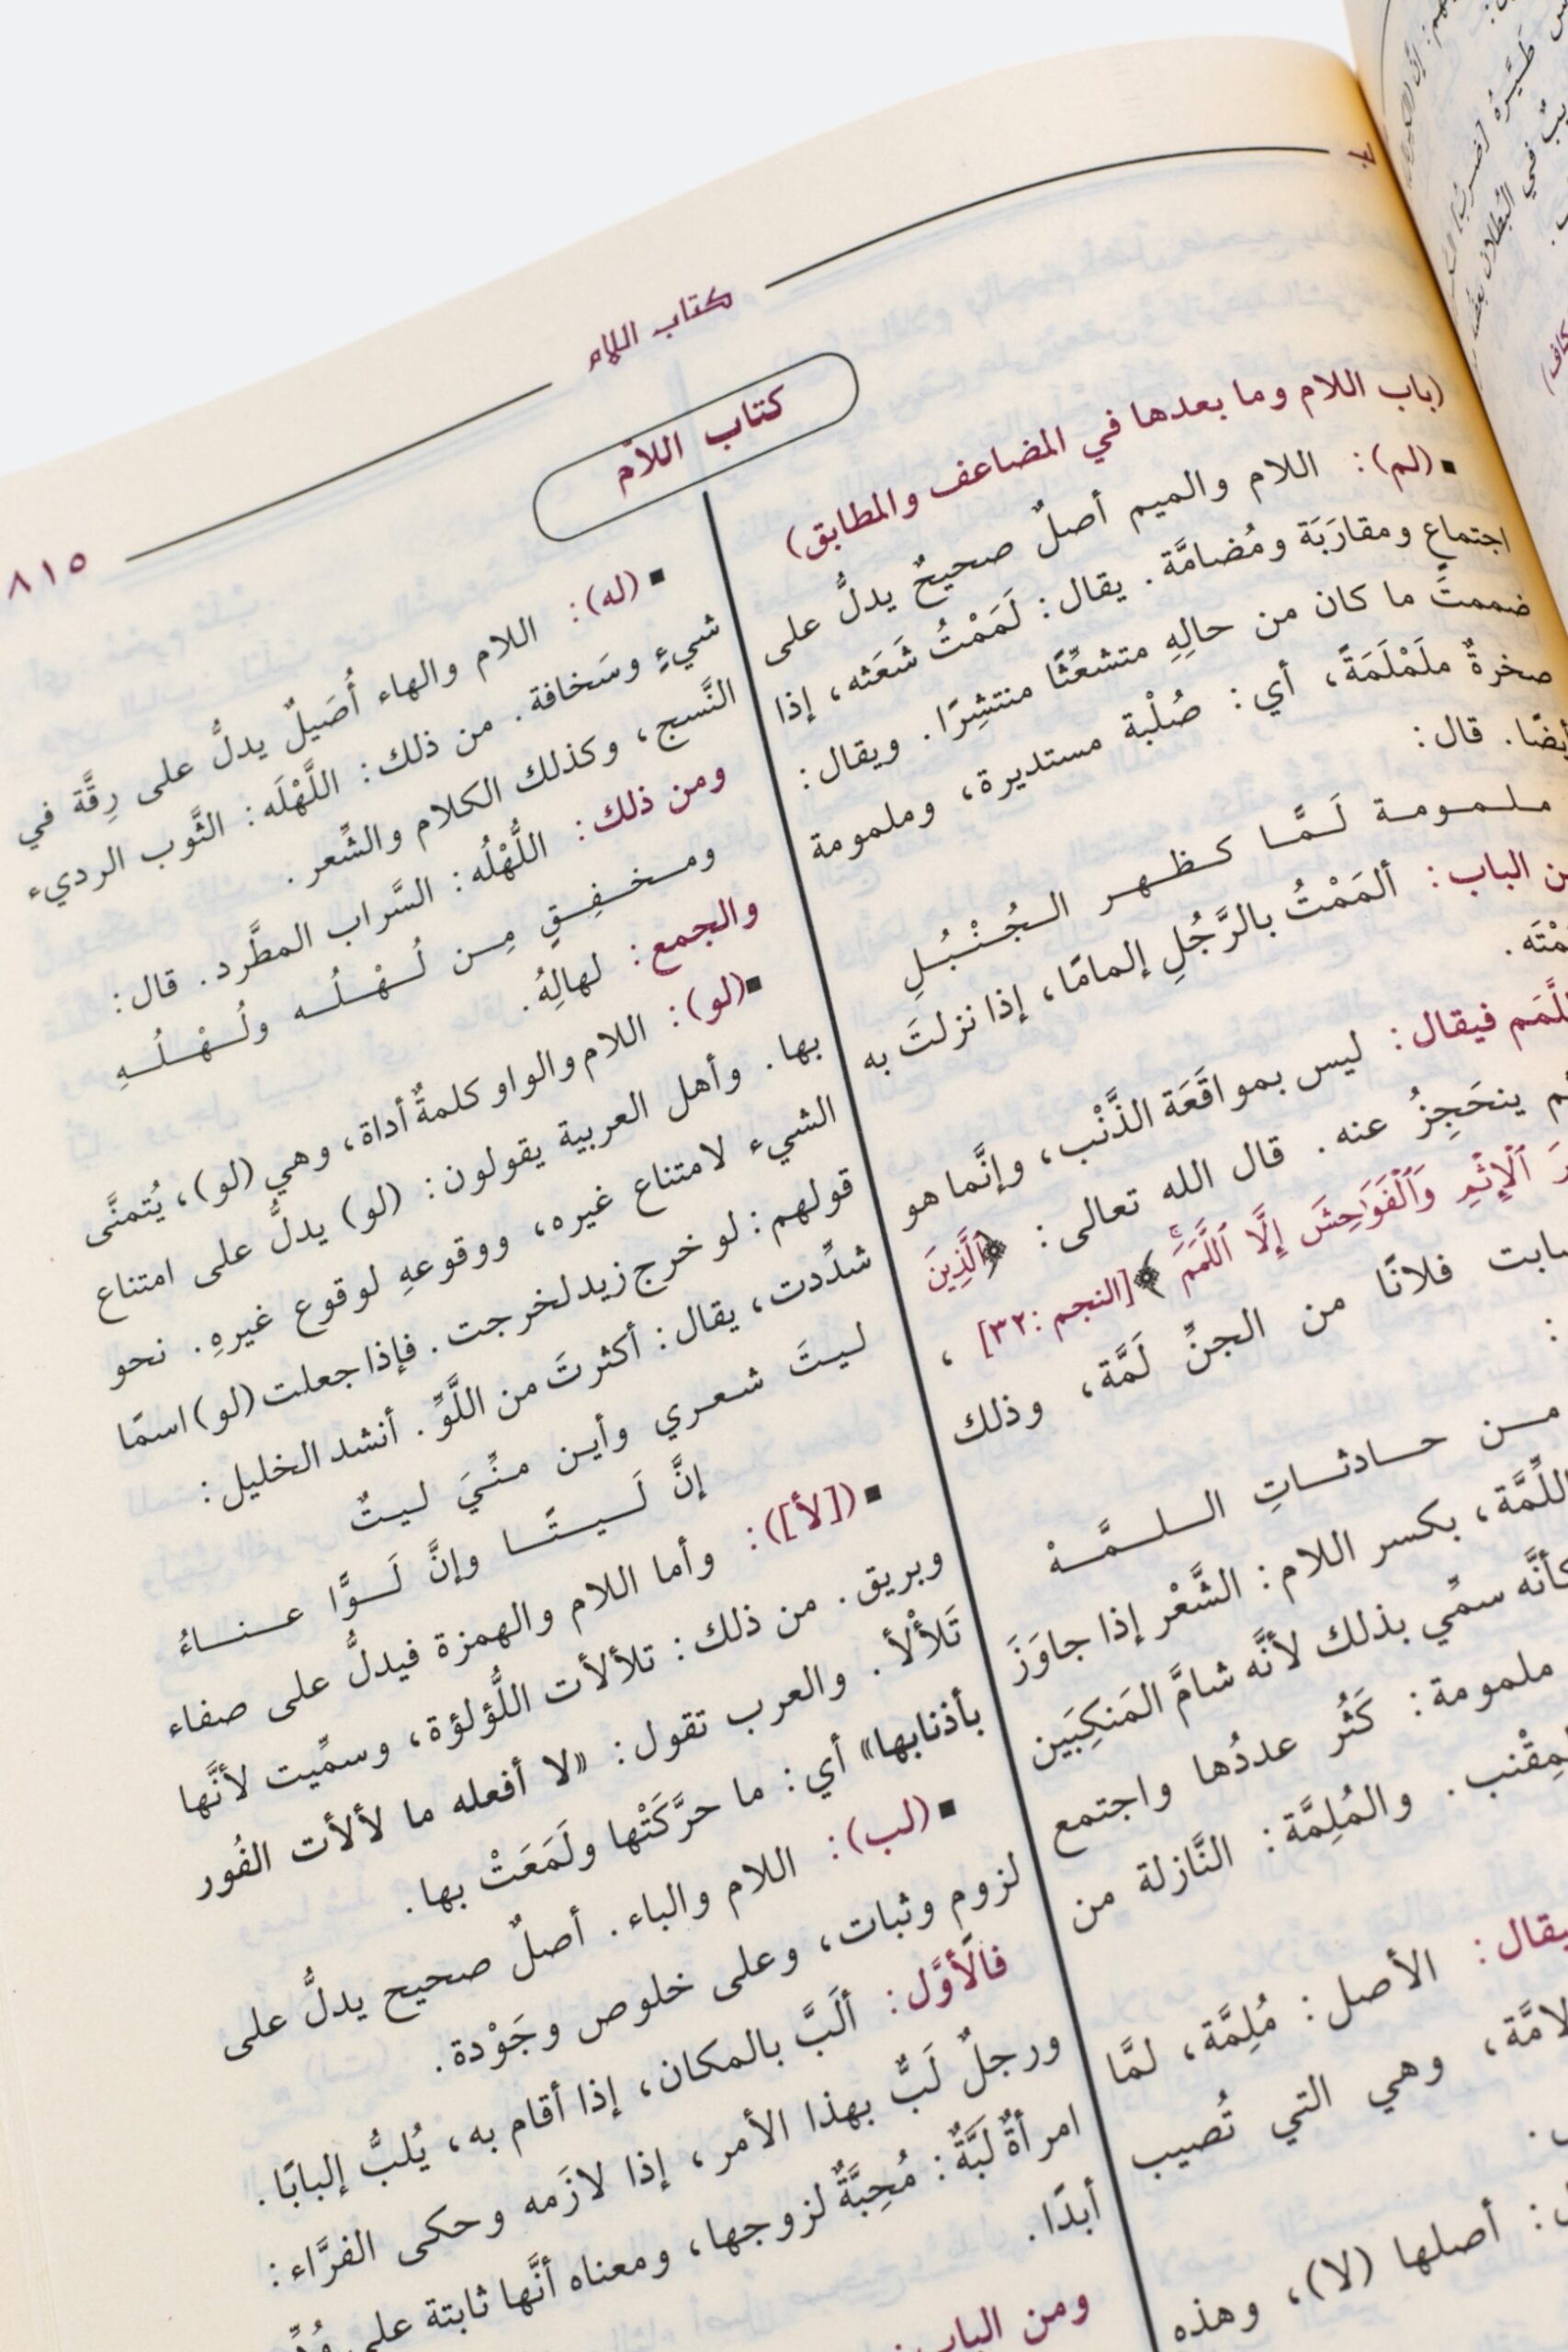 كتاب اللام
٨١٥
كتاب اللام
(باب اللام وما بعدها في المضاعف والمطابق)
▪(لم): اللام والميم أصلٌ صحيحٌ يدلُّ على
اجتماعٍ ومقارَبَة ومُضامَّة. يقال: لَمَمْتُ شَعَثه، إذا
ضممتَ ما كان من حالِهِ متشعِّثًا منتشِرًا. ويقال:
صخرةٌ ملَمْلَمَةً، أي: صُلْبة مستديرة، وملمومة
أيضًا. قال:
ملمومة لَمَّا كظهر الجُنْبُلِ
الباب: ألمَمْتُ بالرَّجُلِ إلمامًا، إذا نزلتَ به
اللَّمَم فيقال: ليس بمواقَعَة الذَّنْب، وإنَّما هو
ينحَجِزُ عنه. قال الله تعالى: ﴿ٱلَّذِينَ
ٱلْإِثْمِ وَٱلْفَوَٰحِشَ إِلَّا ٱللَّمَمَ﴾ [النجم: ٣٢]،
فلانًا من الجنِّ لَمَّة، وذلك
:
من حادثاتِ اللمَّهْ
اللِّمَّة، بكسر اللام: الشَّعْر إذا جاوَزَ
كأنَّه سمِّي بذلك لأنَّه شامَّ المَنكِبَين
ملمومة: كَثُر عددُها واجتمع
المِقْنب. والمُلِمَّة: النَّازلة من
الأصل: مُلِمَّة، لمَّا
وهي التي تُصيب
أصلها (لا)، وهذه
▪(له): اللام والهاء أُصَيلٌ يدلُّ على رِقَّة في
شيءٍ وسَخافة. من ذلك: اللَّهْلَه: الثَّوب الرديء
النَّسج، وكذلك الكلام والشِّعر.
ومن ذلك: اللُّهْلُه: السَّراب المطَّرد. قال:
ومخفِقٍ مِن لُهْلُه ولُهْلُهِ
والجمع: لهالِهُ.
▪(لو): اللام والواو كلمةٌ أداة، وهي (لو)، يُتمنَّى
بها. وأهل العربية يقولون: (لو) يدلُّ على امتناع
الشيء لامتناع غيره، ووقوعهِ لوقوع غيرهِ. نحو
قولهم: لو خرج زيد لخرجت. فإذا جعلت (لو) اسمًا
شدِّدت، يقال: أكثرتَ من اللَّوِّ. أنشد الخليل:
ليتَ شعري وأين منِّيَ ليتٌ
إنَّ لَيتًا وإنَّ لَوًّا عناءُ
▪([لأ]): وأما اللام والهمزة فيدلُّ على صفاء
وبريق. من ذلك: تلألأت اللُّؤلؤة، وسمِّيت لأنَّها
تَلأْلأ. والعرب تقول: «لا أفعله ما لألأت الفُور
بأذنابها» أي: ما حرَّكَتْها ولَمَعَتْ بها.
▪(لب): اللام والباء. أصلٌ صحيح يدلُّ على
لزوم وثبات، وعلى خلوص وجَوْدة.
فالأوَّل: ألَبَّ بالمكان، إذا أقام به، يُلبُّ إلبابًا.
ورجلٌ لَبٌّ بهذا الأمر، إذا لازَمه وحكى الفرَّاء:
امرأةٌ لَبَّةٌ: مُحِبَّةٌ لزوجها، ومعناه أنَّها ثابتة على
أبدًا.
ومن الباب: